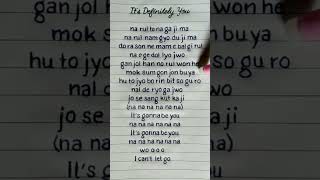 It's Definitely You
na rul to na ga ji ma
na rul nam gyo du ji ma
do ra son ne mam e bal gi rul
na e ge dol lyo jwo
gan jol han no rul won he
mok sum gon jon bu ya
hu to jyo bo rin bit so gu ro
nal de ryo ga jwo
jo se sang kut ka ji
(na na na na na na)
It's gonna be you
na na na na na na
It's gonna be you
na na na na na na na
wo o o o
I can't let go